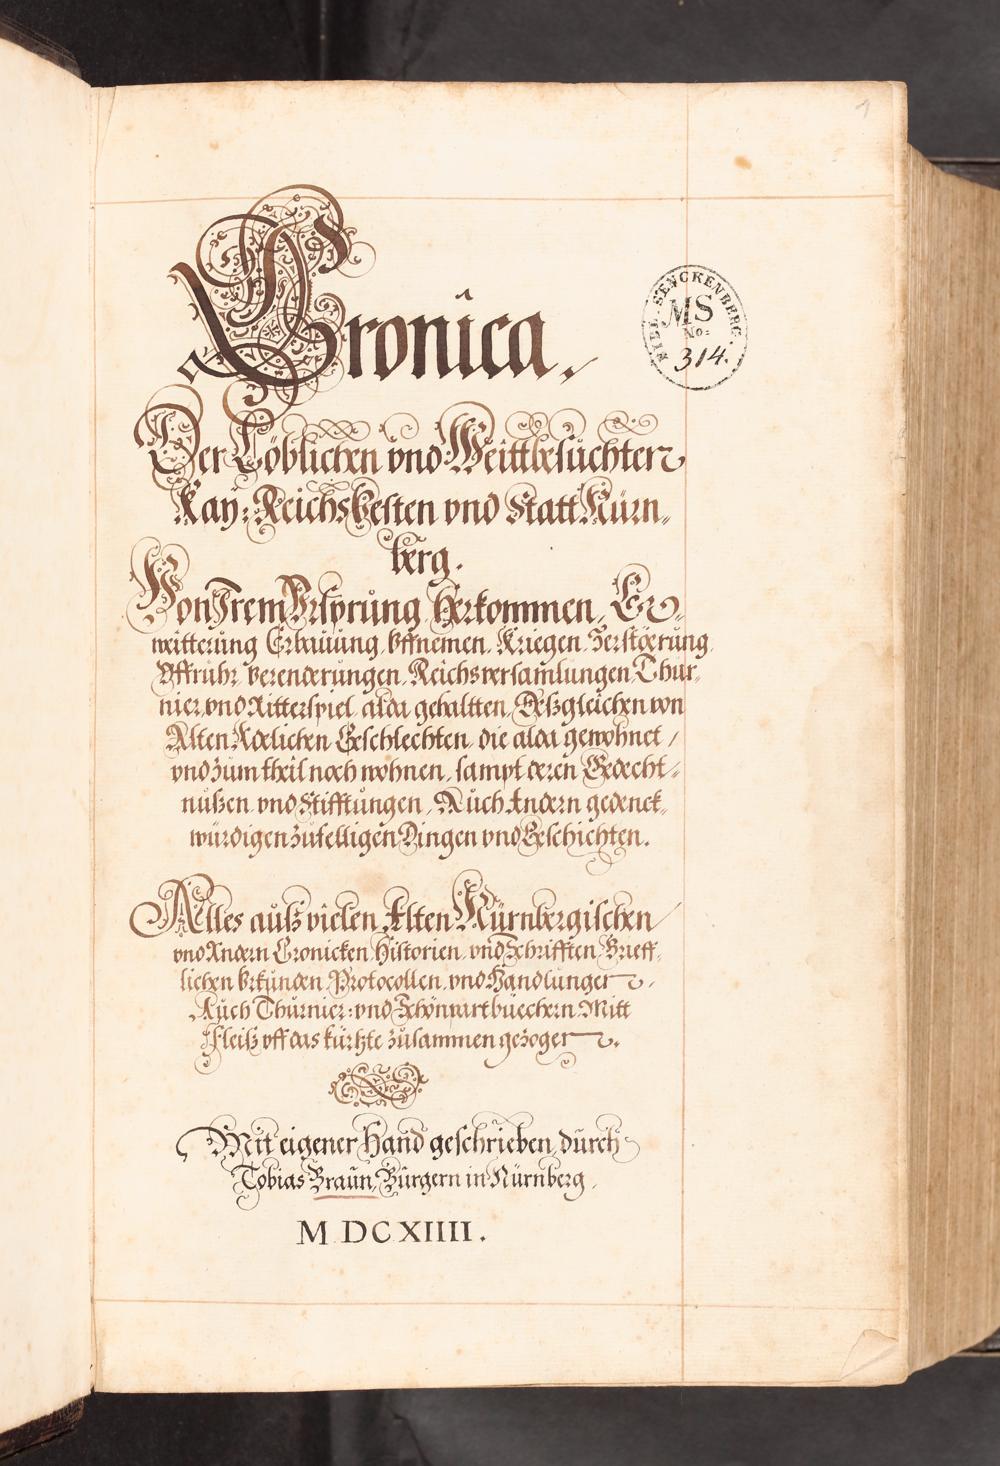 1
Cronica.
BIBL. SENCKENBERG.
MS
No:
314.
Der Löblichen vnd Weittbesuchten
Kay: Reichs Vesten vnd Statt Nürn,
berg.
Von Irem Vrsprung Herkommen, Er,
weitterung Erbauung, Vffnemen, Kriegen, Zerstöerung,
Vffruhr, Verenderungen, Reichsversamlungen Thur,
nier, vnd Ritterspiel, alda gehaltten, Deßgleichen von
Alten Adelichen Geschlechten, die alda gewohnet /
vnd zum theil noch wohnen, sampt deren Gedecht,
nußen, vnd Stifftungen, Auch Andern gedenck,
würdigen zufelligen Dingen vnd Geschichten.
Alles auß vielen Alten Nürnbergischen /
vnd Andern Cronicken, Historien, vnd Schrifften, Brieff,
lichen Vrkunden, Protocollen, vnd Handlungen,
Auch Thurnier: vnd Schönpartbüechern. Mitt
Fleiß vff das kürtzte zusammen gezogen.
Mit eigener Hand geschrieben, durch
Tobias Braun, Burgern in Nürnberg,
M DC XIIII.